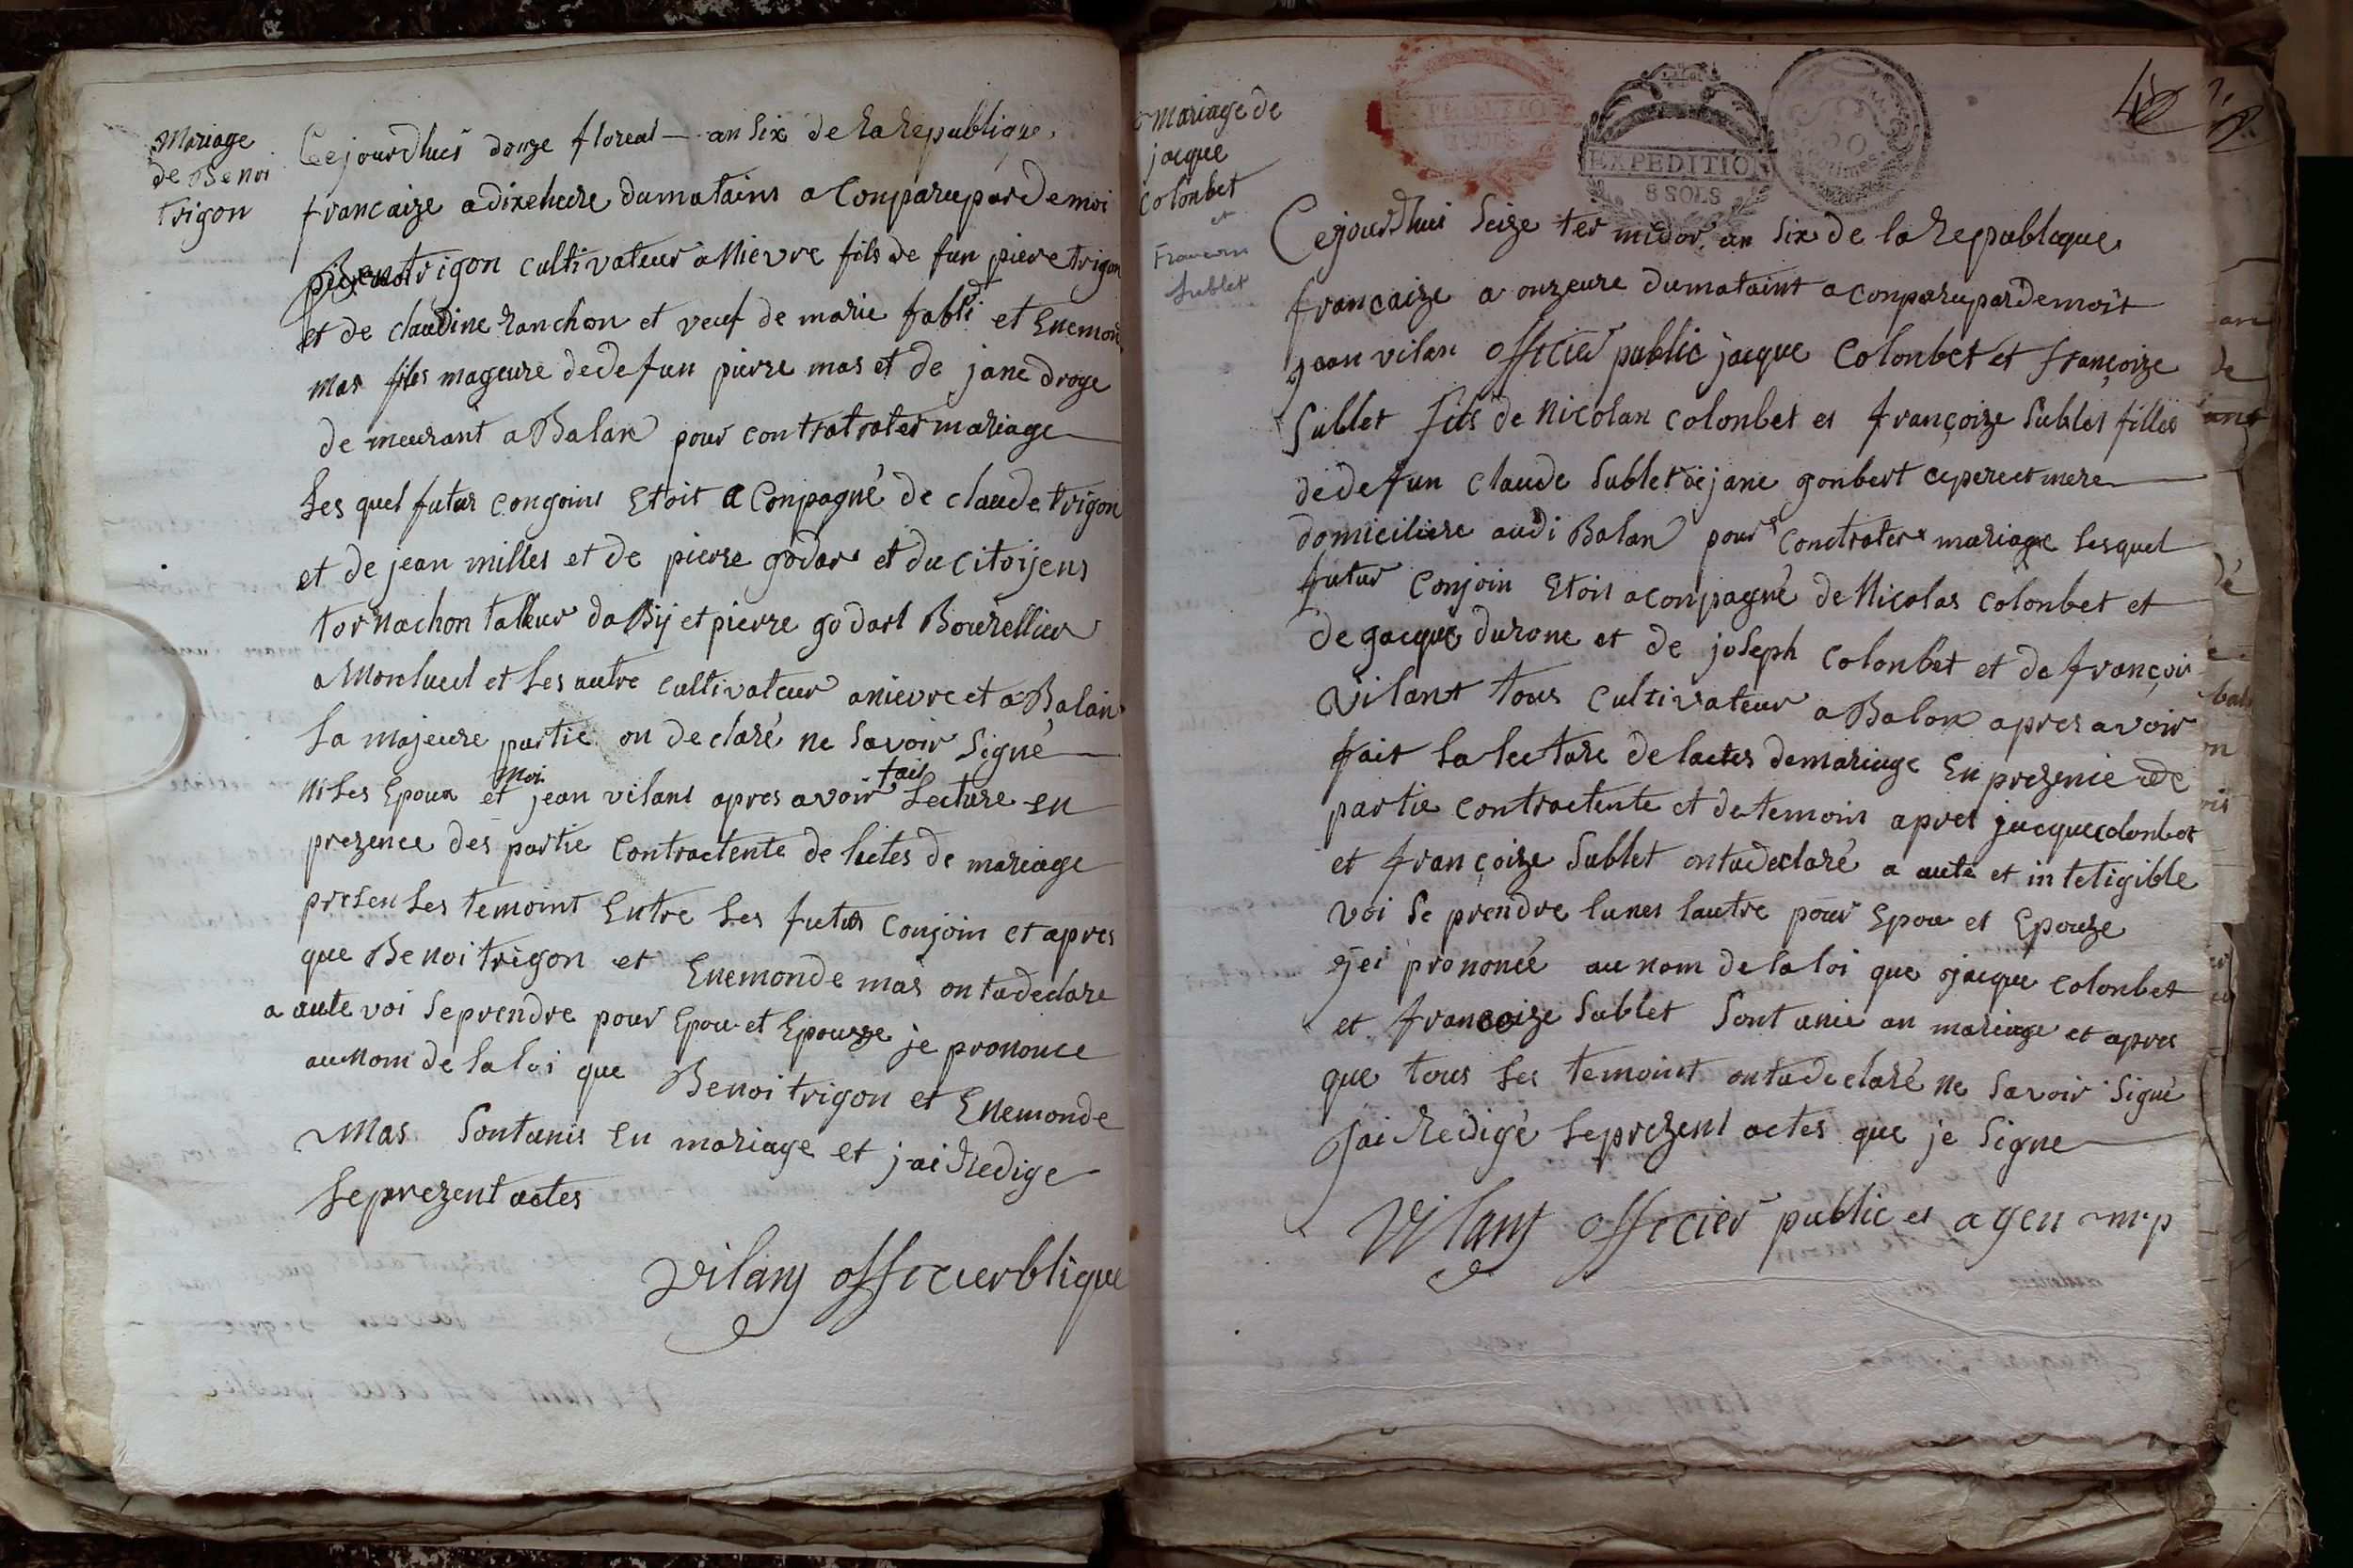 Mariage
de Benoi
trigon
Cejourdhui douze floreal — an Six de la Republique
francaize a dixeheure dumatains a Conparupardemoi
trigon cultivateur a Nievre fils de fun piere trigon
et de claudine Ranchon et veuf de marie et Enemon
mas files mageure dedefun pierre mas et de jane droge
de meurant a Balan pour contratrater mariage
Les quel futur congoins Etoit a Conpagné de claude trigon
et de jean milles et de pierre godar et du citoijens
tornachon talleur daBij et pierre godart Bourellier
a Monlueel et Les autre cultivateur anievre et a Balan
La majeure partie on declaré ne Savoir Signé
ni Les Epoux et moi jean vilans apres avoir fait Lecture en
prezence des partie Contractente de lactes de mariage
presen Les temoint Entre Les futur Conjoin et apres
que Benoi trigon et Enemonde mas on tadeclare
a aute voi Seprendre pour Epou et Epouzze je prononce
aunom de la loi que Benoi trigon et Enemonde
Mas Sontunis En mariage et j'ai Redige
Seprezent actes
Vilans officierblique
Mariage de
jacque
Colonbet
et
Sublet
EXPEDITION
8 SOLS
Cejourdhui Seize ter midor an Six de la Republaque
francaize a onzeure dumataint a conparupardemoit
jean vilan officier public jacque Colonbet et françoize
Sublet fils de Nicolan colonbet et françoize Sublet filles
dedefun claude Sublet de jane gonbert ceperectmere
domiciliere audi Balan pour Conctrater mariage Lesquel
futur Conjoin Etoit aconpagné de Nicolas colonbet et
de gacque durone et de joseph Colonbet et de françois
Vilant tous Cultivateur a Balan apres avoir
fait La lecture delactes demariage En prezence de
partie contractente et de temoin apres jacquecolonbet
et françoize Sublet ontadeclaré a aute et inteligible
voi Se prendre lunes lautre pour Epou et Epouze
jei prononcé au nom de la loi que jacque colonbet
et francoize Sublet Sont unie an mariage et apres
que tous Les temoint ontadeclaré ne Savoir Signé
jai Redigé Seprezent actes que je Signe
Vilans officier public et agen